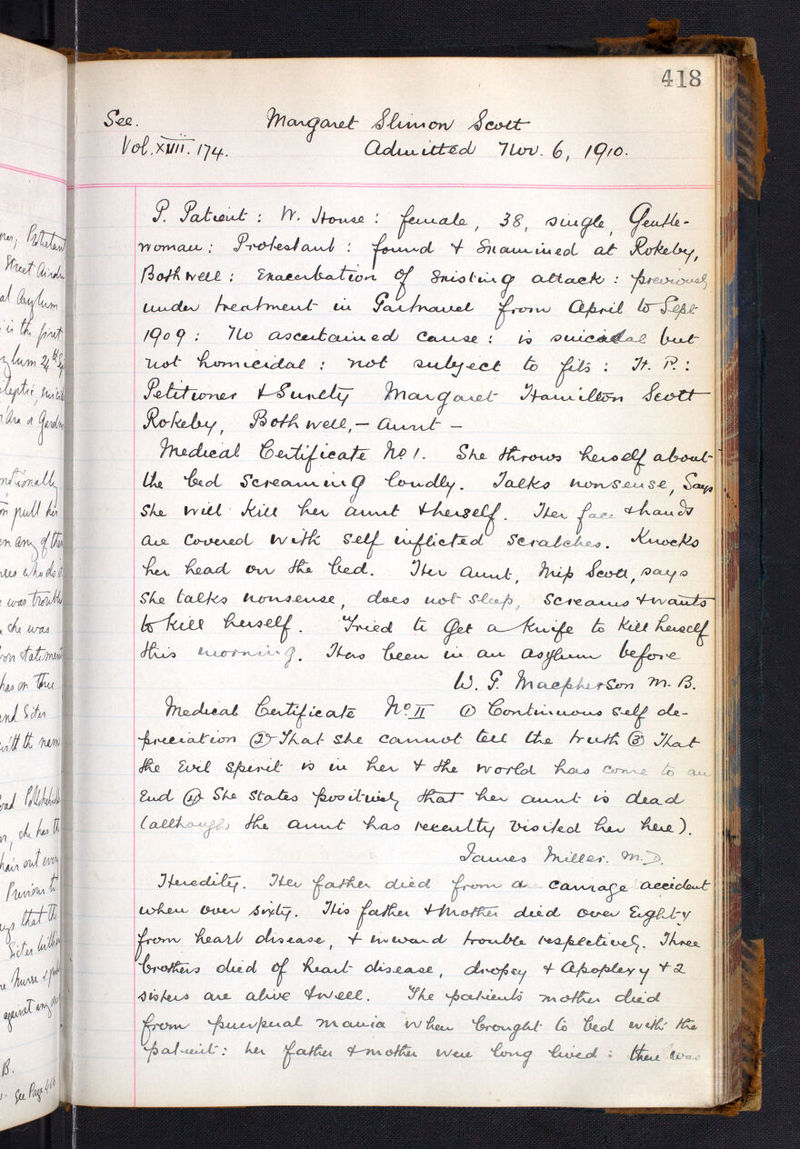 418
See. Margaret Slimon Scott
Vol. XVIII. 174. Admitted Nov. 6, 1910.
P. Patient : W. House : female, 38, single, Gentle-
woman : Protestant : found & examined at Rokeby,
Bothwell : Exacerbation of existing attack : previously
under treatment in Gartnavel from April to Sept
1909 : No ascertained cause : is suicidal but
not homicidal : not subject to fits : H. P. :
Petitioner & Surety Margaret Hamilton Scott
Rokeby, Bothwell, - Aunt -
Medical Certificate No 1. She throws herself about
the bed screaming loudly. Talks nonsense, Says
she will kill her aunt & herself. Her face & hands
are covered with self inflicted scratches. Knocks
her head on the bed. Her Aunt, Miss Scott, says
she talks nonsense, does not sleep, screams & wants
to kill herself. Tried to get a knife to kill herself
this morning. Has been in an asylum before
W. G. Macpherson M. B.
Medical Certificate No II ① Continuous self de-
preciation ② That she cannot tell the truth ③ That
the Evil Spirit is in her & the world has come to an
End ④ She states positively that her aunt is dead
(although the aunt has recently visited her here).
James Miller. M. D.
Heredity. Her father died from a carriage accident
when over sixty. His father & mother died over Eighty
from heart disease, & inward trouble respectively. Three
brothers died of heart disease, dropsy & Apoplexy & 2
sisters are alive & well. The patient's mother died
from puerperal mania when brought to bed with the
patient : her father & mother were long lived : there was
Street
al Asylum
is the first
notionally
pull
en any of the
she was
statement
has on
and Sister
with the
she has the
hair out
Previous to
says that the
Sister
Nurse
against any
B.
See Page